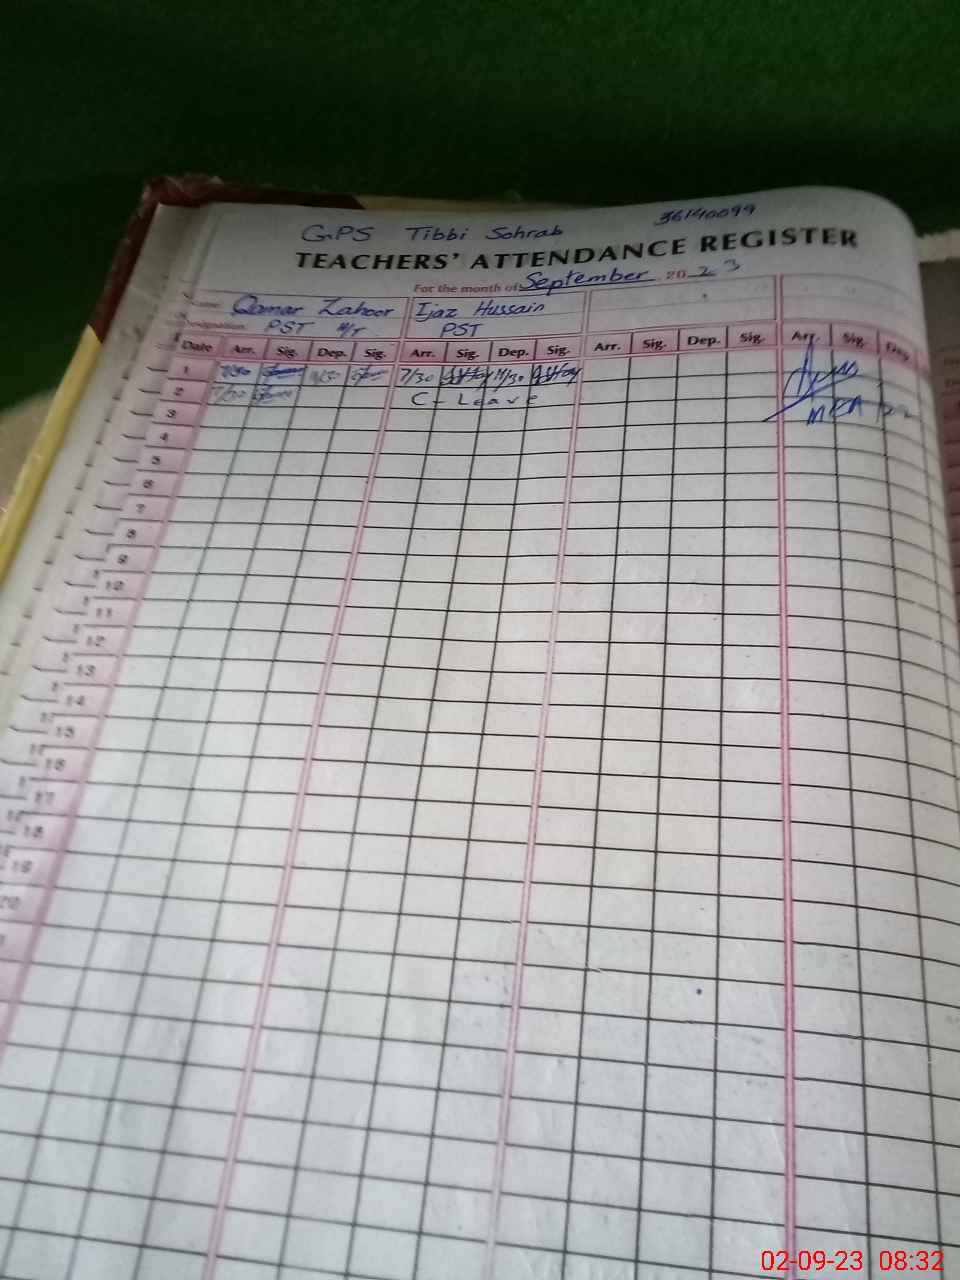 GPS Tibbi Sohrab 36140099
TEACHERS' ATTENDANCE REGISTER
For the month of September 2023
Name: Qamar Zahoor Ijaz Hussain
Designation: PST H/T PST
Date Arr. Sig. Dep. Sig. Arr. Sig. Dep. Sig. Arr. Sig. Dep. Sig. Arr. Sig. Dep.
1 7/30 7/30 11/30
2 7/30 C-Leave
3 MEA
4
5
6
7
8
9
10
11
12
13
14
15
16
17
18
19
20
02-09-23 08:32